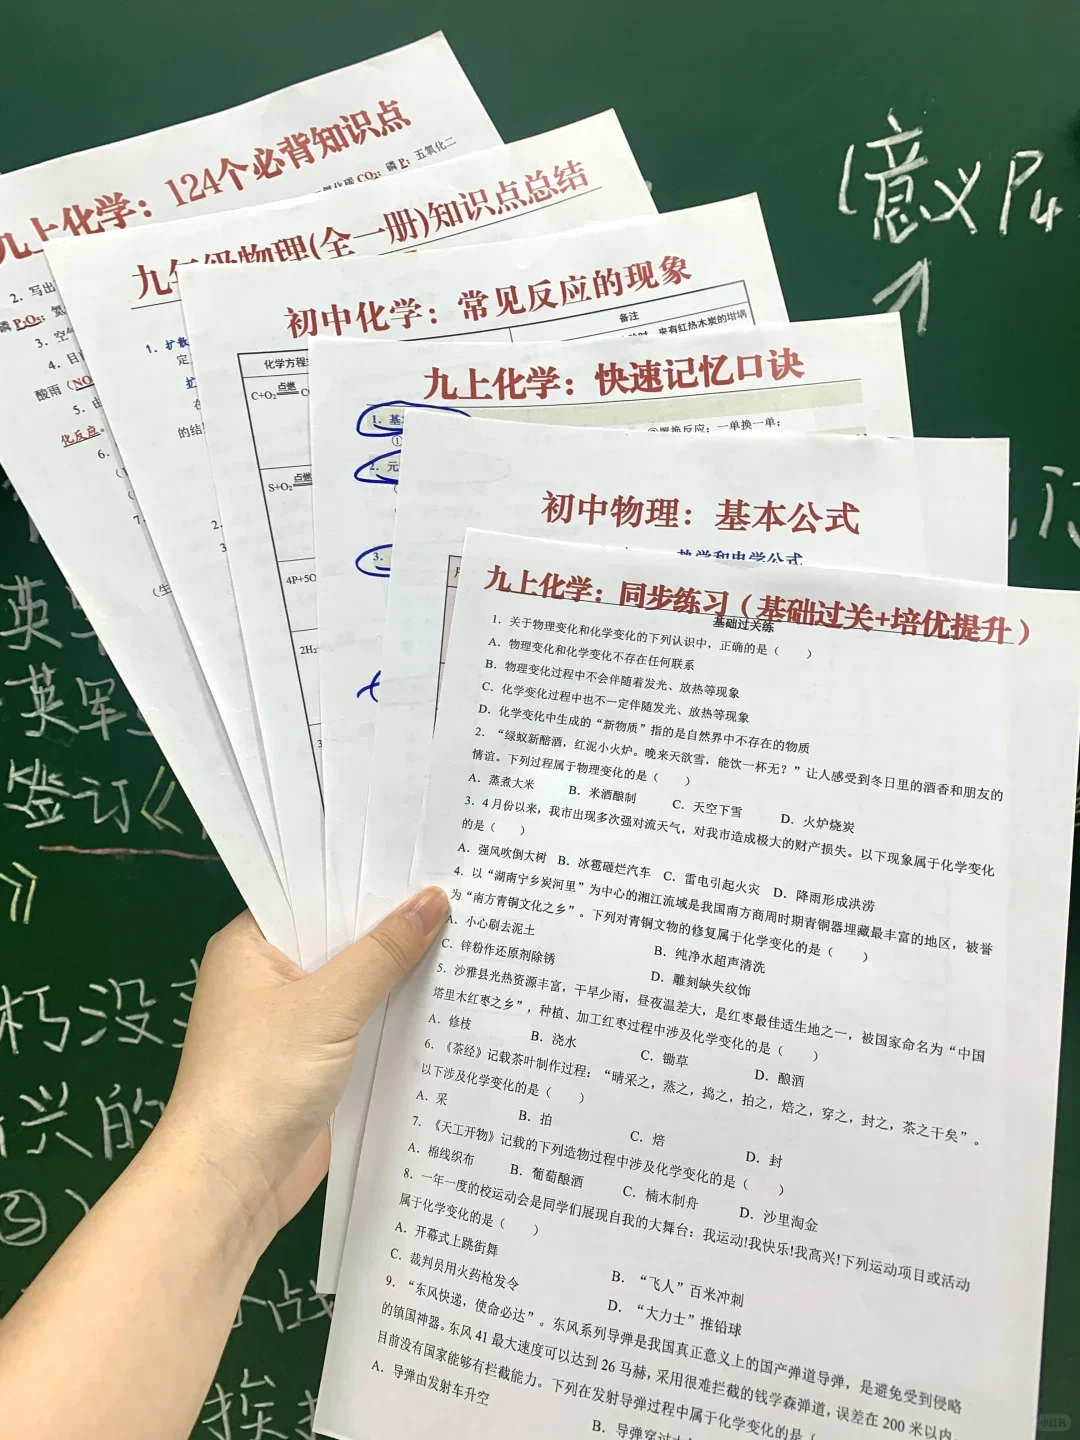 九上化学：124个必背知识点
氧化碳 CO₂；磷 P；五氧化二
2．写出
磷 P₂O₅；氦
3．空气
4．目前
酸雨（NO
5．由
化反应。
6．
7．
九年级物理(全一册)知识点总结
1．扩散
定
扩
在
的结
2．
3
初中化学：常见反应的现象
备注
化学方程式
夹有红热木炭的坩埚
C+O₂ 点燃 C
S+O₂ 点燃
4P+5O
2H₂
九上化学：快速记忆口诀
1．基
①
②置换反应：一单换一单；
2．元
3．
初中物理：基本公式
热学和电学公式
九上化学：同步练习（基础过关+培优提升）
基础过关练
1．关于物理变化和化学变化的下列认识中，正确的是（　　）
A．物理变化和化学变化不存在任何联系
B．物理变化过程中不会伴随着发光、放热等现象
C．化学变化过程中也不一定伴随发光、放热等现象
D．化学变化中生成的“新物质”指的是自然界中不存在的物质
2．“绿蚁新醅酒，红泥小火炉。晚来天欲雪，能饮一杯无？”让人感受到冬日里的酒香和朋友的
情谊。下列过程属于物理变化的是（　　）
A．蒸煮大米 B．米酒酿制 C．天空下雪 D．火炉烧炭
3．4 月份以来，我市出现多次强对流天气，对我市造成极大的财产损失。以下现象属于化学变化
的是（　　）
A．强风吹倒大树 B．冰雹砸烂汽车 C．雷电引起火灾 D．降雨形成洪涝
4．以“湖南宁乡炭河里”为中心的湘江流域是我国南方商周时期青铜器埋藏最丰富的地区，被誉
为“南方青铜文化之乡”。下列对青铜文物的修复属于化学变化的是（　　）
A．小心刷去泥土 B．纯净水超声清洗
C．锌粉作还原剂除锈 D．雕刻缺失纹饰
5．沙雅县光热资源丰富，干旱少雨，昼夜温差大，是红枣最佳适生地之一，被国家命名为“中国
塔里木红枣之乡”，种植、加工红枣过程中涉及化学变化的是（　　）
A．修枝 B．浇水 C．锄草 D．酿酒
6．《茶经》记载茶叶制作过程：“晴采之，蒸之，捣之，拍之，焙之，穿之，封之，茶之干矣”。
以下涉及化学变化的是（　　）
A．采 B．拍 C．焙 D．封
7．《天工开物》记载的下列造物过程中涉及化学变化的是（　　）
A．棉线织布 B．葡萄酿酒 C．楠木制舟 D．沙里淘金
8．一年一度的校运动会是同学们展现自我的大舞台：我运动!我快乐!我高兴!下列运动项目或活动
属于化学变化的是（　　）
A．开幕式上跳街舞 B．“飞人”百米冲刺
C．裁判员用火药枪发令 D．“大力士”推铅球
9．“东风快递，使命必达”。东风系列导弹是我国真正意义上的国产弹道导弹，是避免受到侵略
的镇国神器。东风 41 最大速度可以达到 26 马赫，采用很难拦截的钱学森弹道，误差在 200 米以内，
目前没有国家能够有拦截能力。下列在发射导弹过程中属于化学变化的是（
A．导弹由发射车升空
B．导弹穿过大
意义 P4
英
英军
签订《
》
朽没
兴的
③）
战
挨
小红书